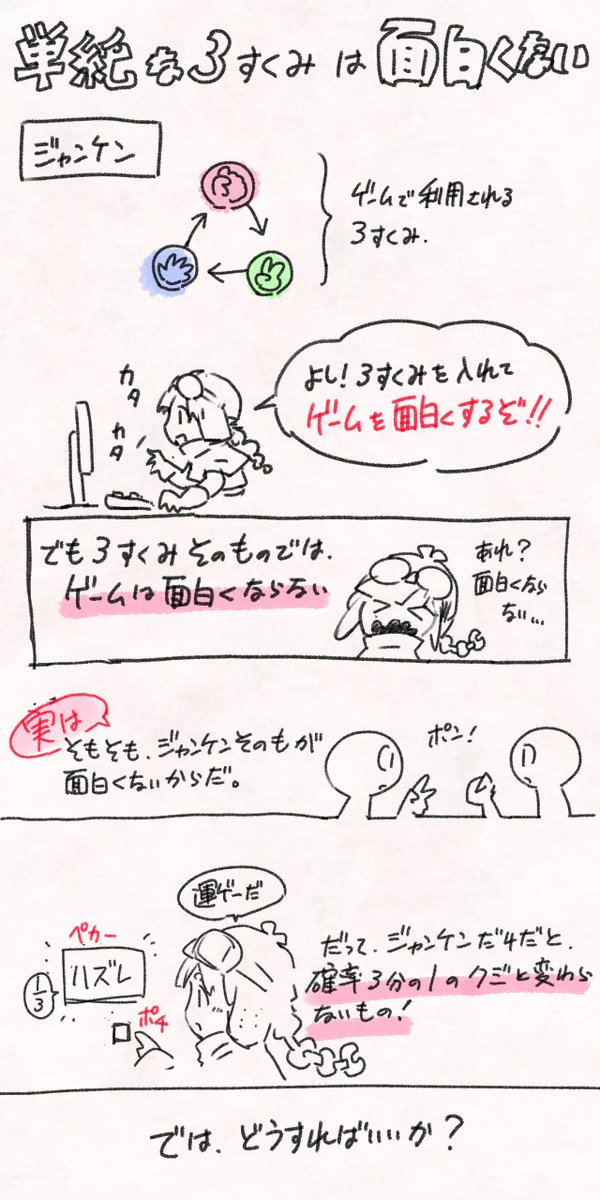 単純な3すくみは面白くない
ジャンケン
ゲームで利用される
3すくみ.
カタ
カタ
よし!3すくみを入れて
ゲームを面白くするぞ!!
でも3すくみそのものでは.
ゲームは面白くならない
あれ?
面白くなら
ない...
実は
そもそも、ジャンケンそのもが
面白くないからだ。
ポン!
運ゲーだ
ペカー
ハズレ
1/3
ポチ
だって、ジャンケンだけだと、
確率3分の1のクジと変わら
ないもの!
では、どうすればいいか?